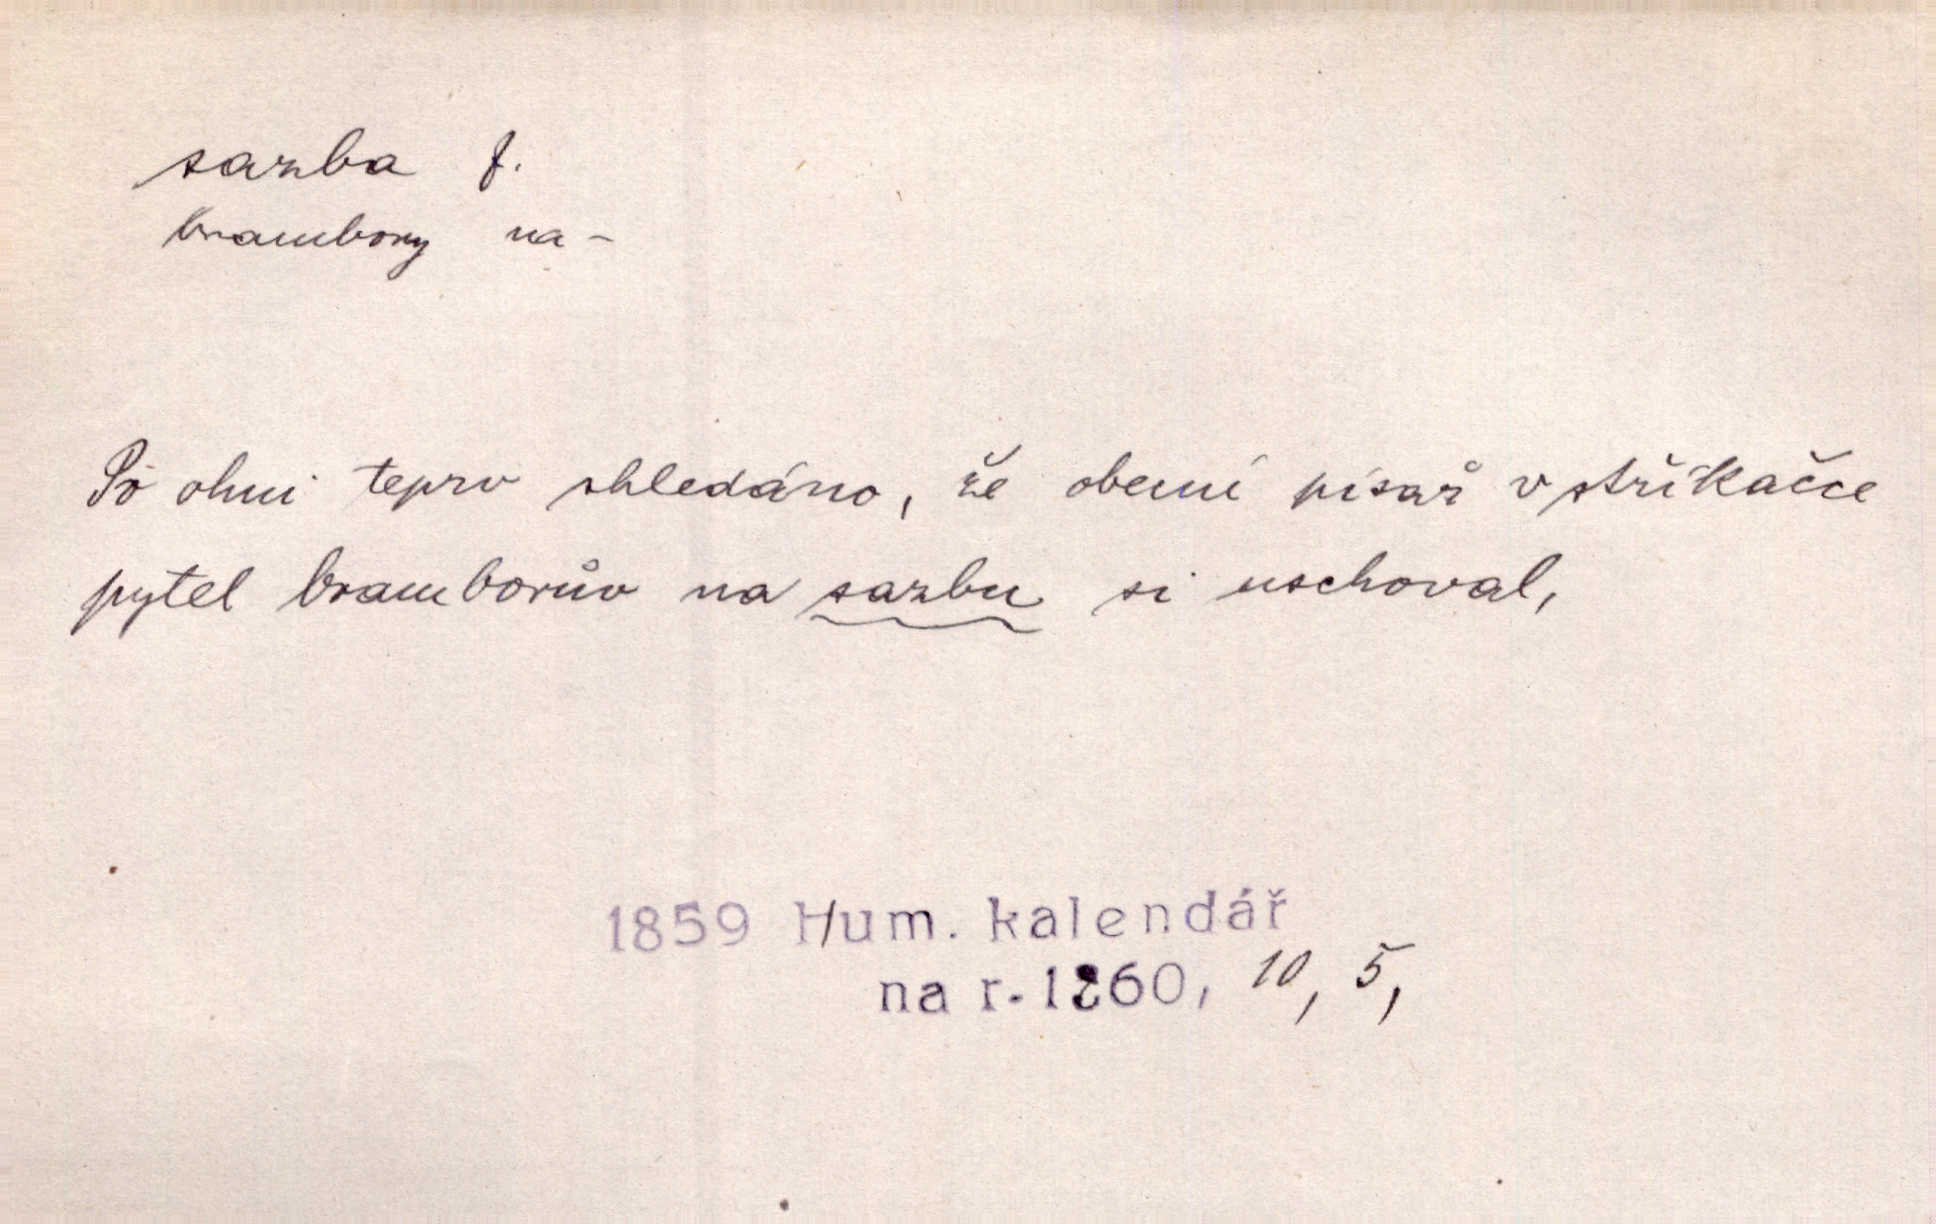 sazba f.
brambory na-
Po ohni teprv shledáno, že obecní písař v stříkačce
pytel bramborův na sazbu si uschoval,
1859 Hum. kalendář
na r. 1860, 10, 5,